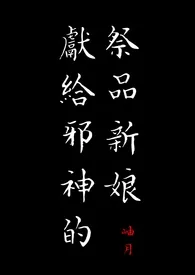 獻給邪神的
祭品新娘
岫月